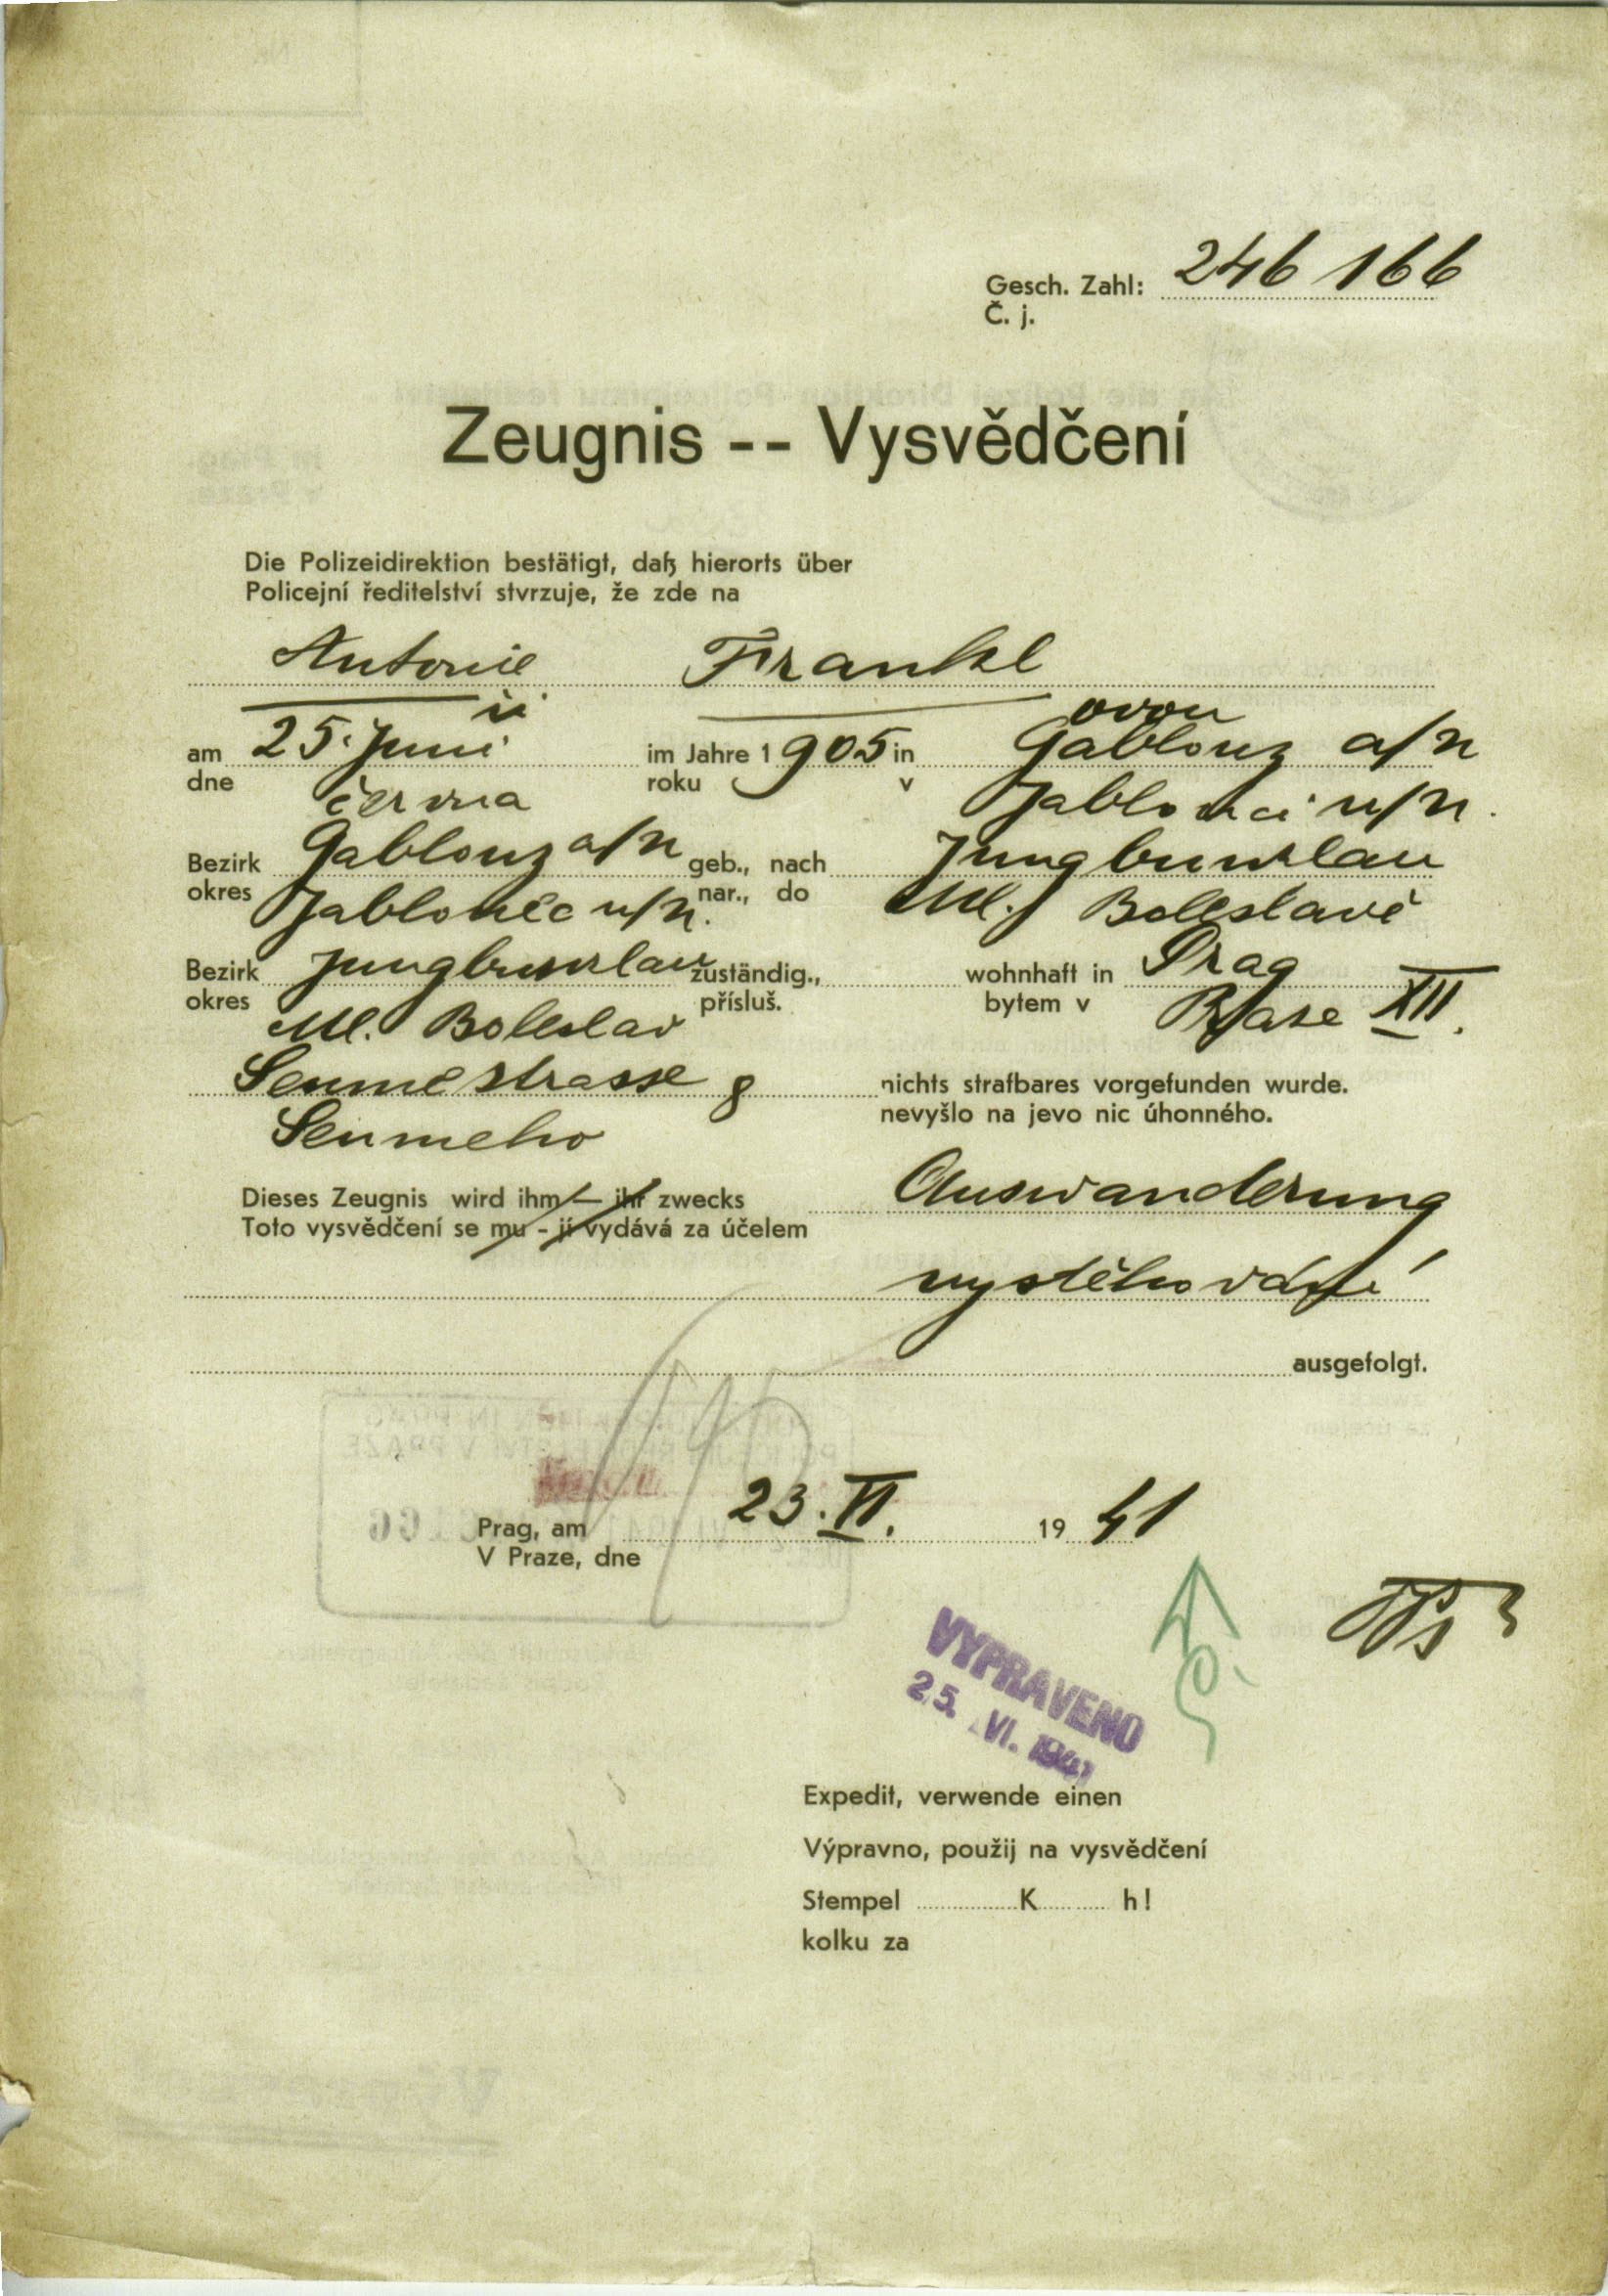 Gesch. Zahl: 246 166
Č. j.
Zeugnis -- Vysvědčení
Die Polizeidirektion bestätigt, daß hierorts über
Policejní ředitelství stvrzuje, že zde na
Antonie Frankl
ii ovou
am 25. Juni im Jahre 1905 in Gablonz a/N
dne června roku v Jablonci n/N.
Bezirk Gablonz a/N geb., nach Jungbunzlau
okres Jablonec n/N. nar., do Ml. Boleslavě
Bezirk Jungbunzlau zuständig., wohnhaft in Prag
okres Ml. Boleslav přísluš. bytem v Praze XII.
Seumestrasse 8 nichts strafbares vorgefunden wurde.
Seumeho nevyšlo na jevo nic úhonného.
Dieses Zeugnis wird ihm - ihr zwecks Auswanderung
Toto vysvědčení se mu - jí vydává za účelem
vystěhování
ausgefolgt.
Prag, am 23. VI. 1941
V Praze, dne
VYPRAVENO
25. VI. 1941
Expedit, verwende einen
Výpravno, použij na vysvědčení
Stempel K h!
kolku za